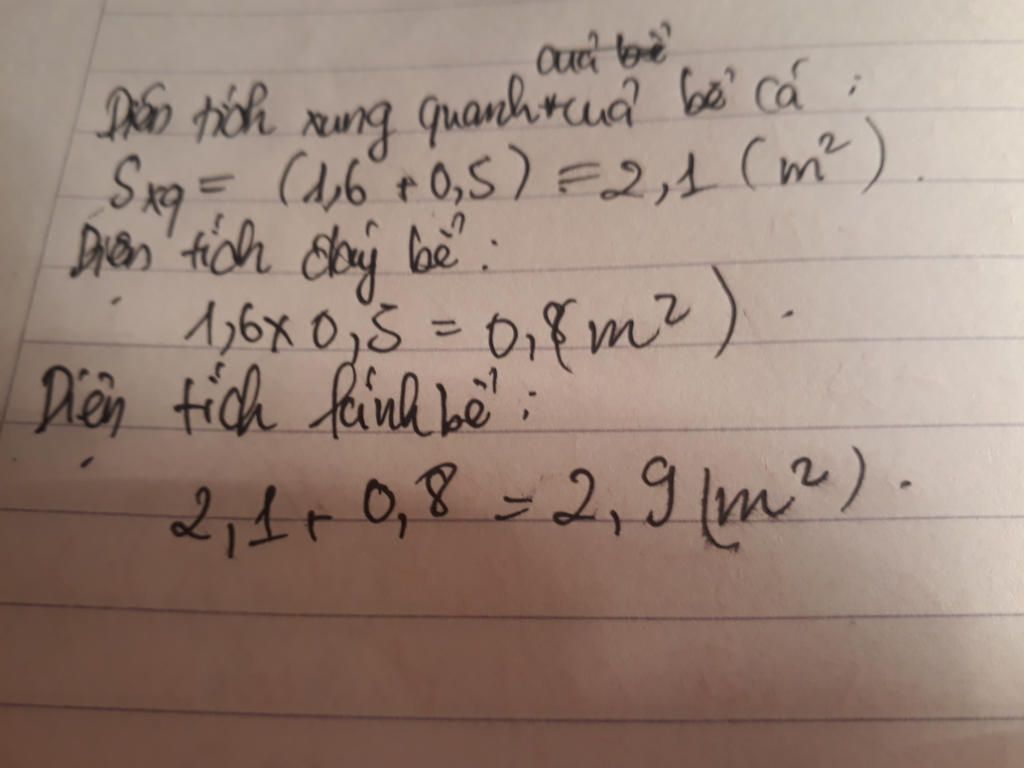 của bể
Diện tích xung quanh của bể cá :
Sxq = (1,6 + 0,5) = 2,1 (m²).
Diện tích đáy bể :
1,6 x 0,5 = 0,8 (m²).
Diện tích kính bể :
2,1 + 0,8 = 2,9 (m²).